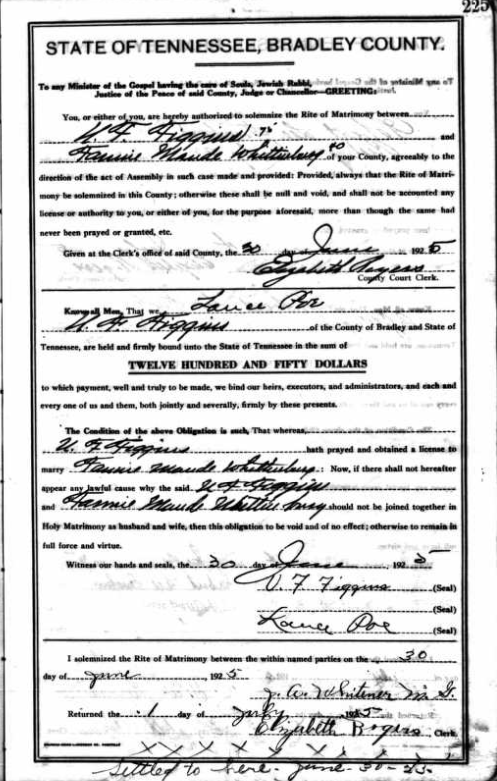 225
STATE OF TENNESSEE, BRADLEY COUNTY.
To any Minister of the Gospel having the care of Souls, Jewish Rabbi,
Justice of the Peace of said County, Judge or Chancellor—GREETING:
You, or either of you, are hereby authorized to solemnize the Rite of Matrimony between
U. F. Figgins 75 and
Fannie Maude Whittenburg 40 of your County, agreeably to the
direction of the act of Assembly in such case made and provided: Provided, always that the Rite of Matri-
mony be solemnized in this County; otherwise these shall be null and void, and shall not be accounted any
license or authority to you, or either of you, for the purpose aforesaid, more than though the same had
never been prayed or granted, etc.
Given at the Clerk's office of said County, the 30 day of June 1925
Elizabeth Rogers
County Court Clerk.
Know all Men, That we Lance Poe
U. F. Figgins of the County of Bradley and State of
Tennessee, are held and firmly bound unto the State of Tennessee in the sum of
TWELVE HUNDRED AND FIFTY DOLLARS
to which payment, well and truly to be made, we bind our heirs, executors, and administrators, and each and
every one of us and them, both jointly and severally, firmly by these presents.
The Condition of the above Obligation is such, That whereas,
U. F. Figgins hath prayed and obtained a license to
marry Fannie Maude Whittenburg: Now, if there shall not hereafter
appear any lawful cause why the said U. F. Figgins
and Fannie Maude Whittenburg should not be joined together in
Holy Matrimony as husband and wife, then this obligation to be void and of no effect; otherwise to remain in
full force and virtue.
Witness our hands and seals, the 30 day of June, 1925
U. F. Figgins (Seal)
(Seal)
Lance Poe (Seal)
I solemnized the Rite of Matrimony between the within named parties on the 30
day of June, 1925
J. A. Whitener M. G.
Returned the 1 day of July 1925
Elizabeth Rogers, Clerk.
XXXXXXXXXX
Settled to here June 30-25.